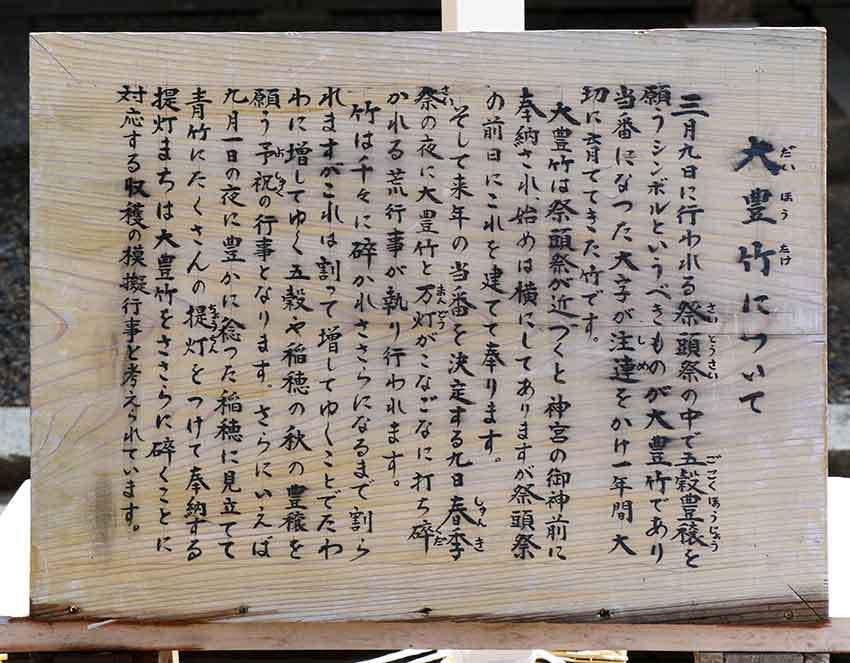 大豊竹について
三月九日に行われる祭頭祭の中で五穀豊穣を
願うシンボルというべきものが大豊竹であり
当番になった大字が注連をかけ一年間大
切に育ててきた竹です。
大豊竹は祭頭祭が近づくと神宮の御神前に
奉納され、始めは横にしてありますが祭頭祭
の前日にこれを建てて奉ります。
そして来年の当番を決定する九日春季
祭の夜に大豊竹と万灯がこなごなに打ち砕
かれる荒行事が執り行われます。
竹は千々に砕かれささらになるまで割ら
れますがこれは割って増してゆくことでたわ
わに増してゆく五穀や稲穂の秋の豊穣を
願う予祝の行事となります。さらにいえば
九月一日の夜に豊かに稔った稲穂に見立てて
青竹にたくさんの提灯をつけて奉納する
提灯まちは大豊竹をささらに砕くことに
対応する収穫の模擬行事と考えられています。